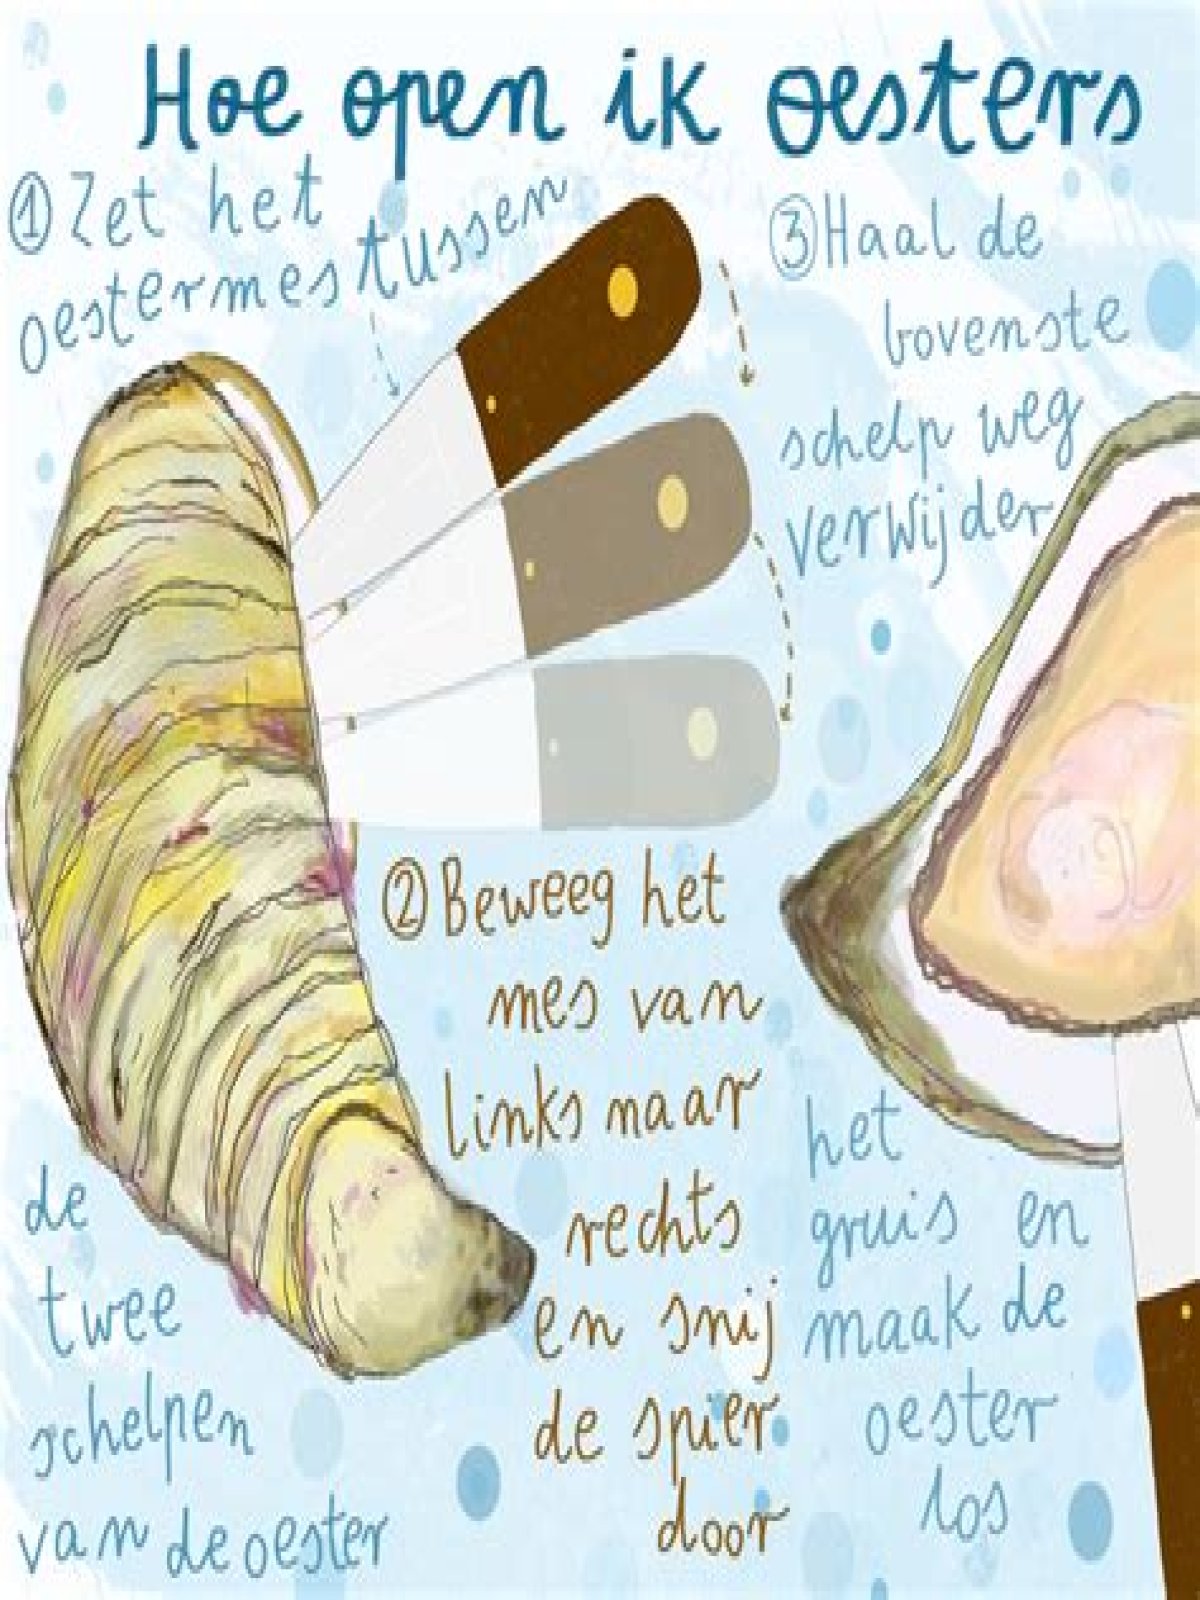 Hoe open ik oesters
① Zet het
oestermes tussen
de
twee
schelpen
van de oester
② Beweeg het
mes van
links naar
rechts
en snij
de spier
door
③ Haal de
bovenste
schelp weg
verwijder
het
gruis en
maak de
oester
los